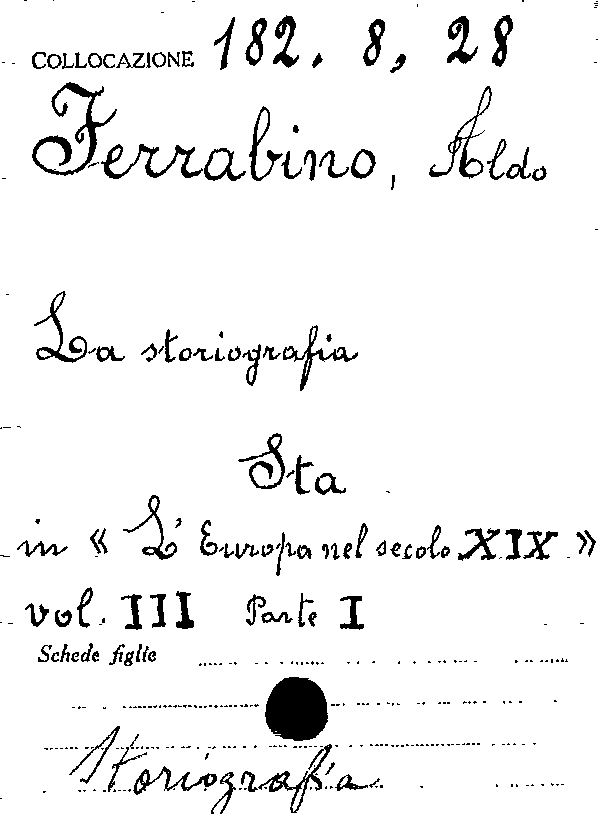 COLLOCAZIONE 182. 8, 28
Ferrabino, Aldo
La storiografia
Sta
in « L'Europa nel secolo XIX »
vol. III Parte I
Schede figlie
Storiografia